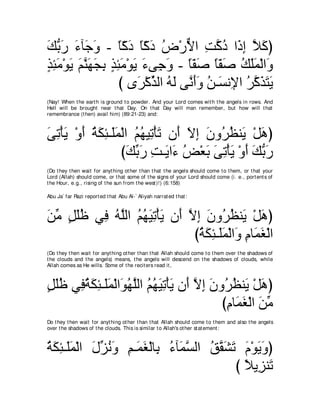 ﴿كَلَّا إِذَا دُكَّتِ الاٌّرْضُ دَكّاً دَكّاً - وَجَآءَ رَبُّكَ
وَالْمَلَكُ صَفّاً صَفّاً - وَجِىءَ يَوْمَئِذٍ بِجَهَنَّمَ يَوْمَئِذٍ
يَتَذَكَّرُ الإِنسَـنُ وَأَنَّى لَهُ الذِّكْرَى ﴾
(Nay! When the earth is ground to powder. And your Lord comes with the angels in rows. And
Hell will be brought near that Day. On that Day will man remember, but how will that
remembrance (then) avail him) (89:21-23) and:
﴿هَلْ يَنظُرُونَ إِلاَ أَن تَأْتِيهُمُ الْمَلَـئِكَةُ أَوْ يَأْتِىَ
رَبُّكَ أَوْ يَأْتِىَ بَعْضُ ءَايَـتِ رَبِّكَ﴾
(Do they then wait for anything other than that the angels should come to them, or that your
Lord (Allah) should come, or that some of the signs of your Lord should come (i.e., portents of
the Hour, e.g., rising of the sun from the west)!) (6:158)
Abu Ja`far Razi reported that Abu Al-`Aliyah narrated that:
﴿هَلْ يَنظُرُونَ إِلاَ أَن يَأْتِيَهُمُ اللَّهُ فِي ظُلَلٍ مِّنَ
الْغَمَامِ وَالْمَلَـئِكَةُ﴾
(Do they then wait for anything other than that Allah should come to them over the shadows of
the clouds and the angels) means, the angels will descend on the shadows of clouds, while
Allah comes as He wills. Some of the reciters read it,
﴿هَلْ يَنظُرُونَ إِلاَ أَن يَأْتِيَهُمُ اللَّهُوَالْمَلَـئِكَةُفِي ظُلَلٍ
مِّنَ الْغَمَامِ﴾
Do they then wait for anything other than that Allah should come to them and also the angels
over the shadows of the clouds. This is similar to Allah's other statement:
﴿وَيَوْمَ تَشَقَّقُ السَّمَآءُ بِالْغَمَـمِ وَنُزِّلَ الْمَلَـئِكَةُ
تَنزِيلاً ﴾